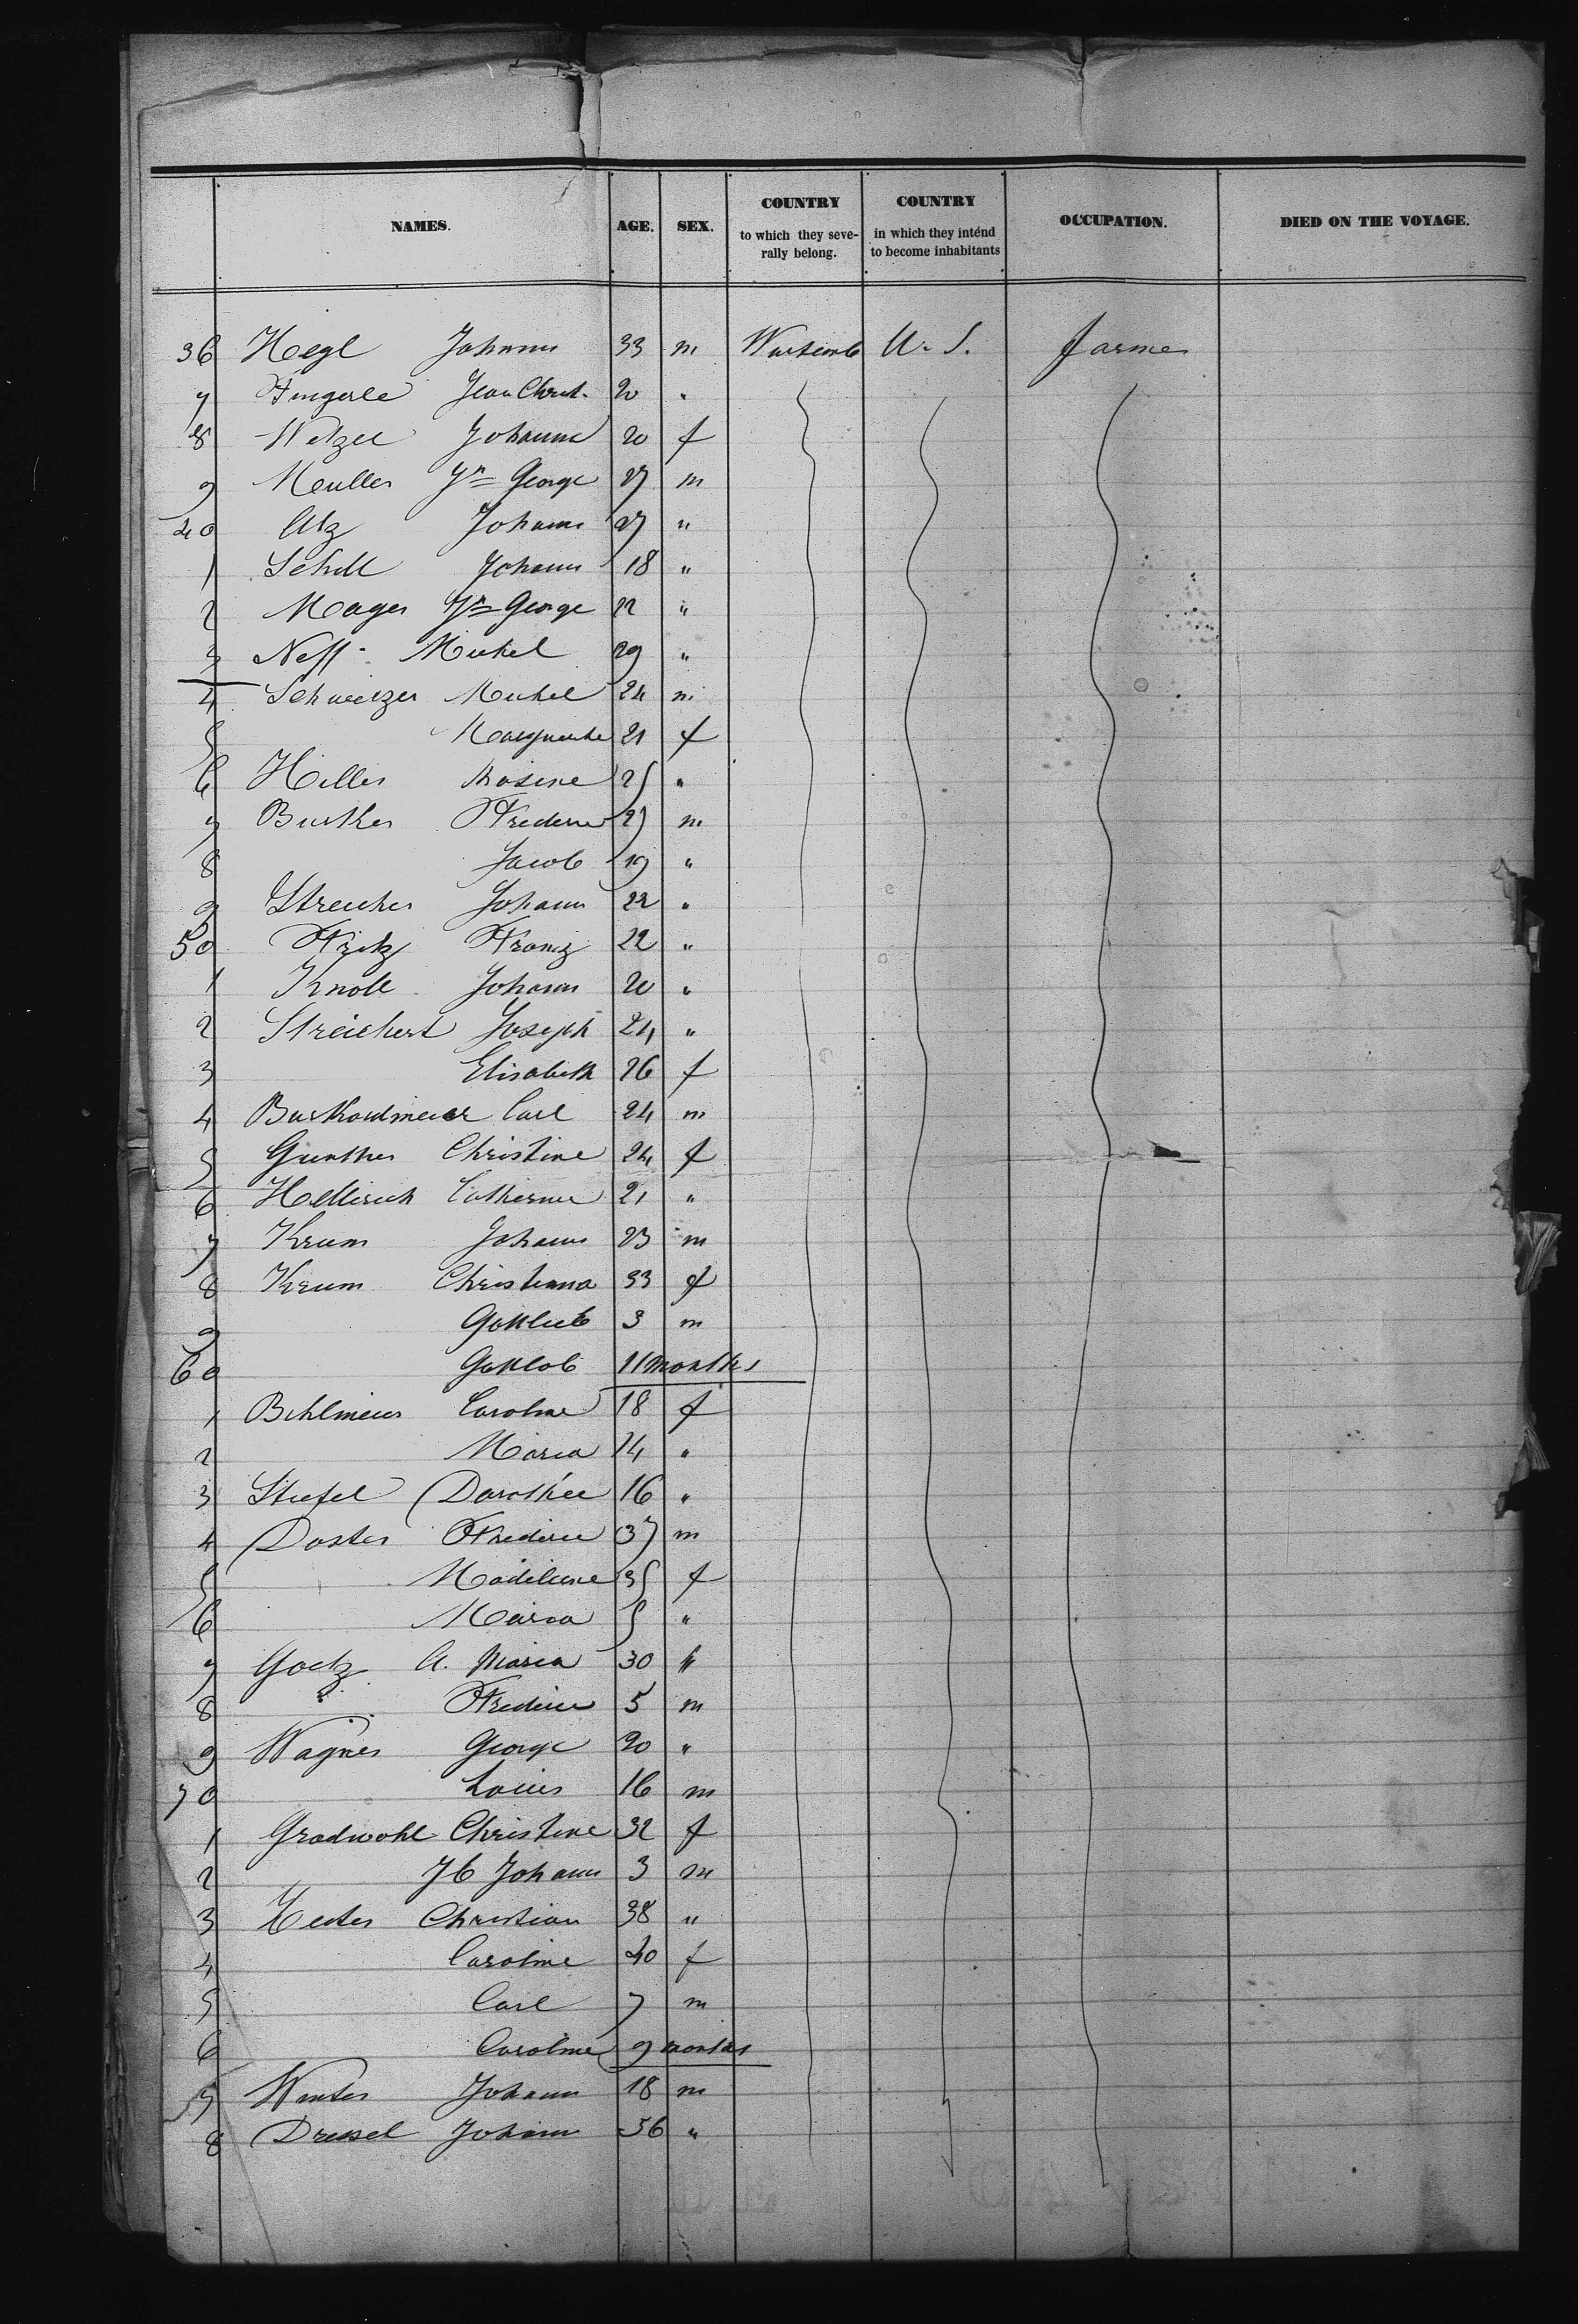 NAMES. AGE. SEX. COUNTRY to which they severally belong. COUNTRY in which they intend to become inhabitants OCCUPATION. DIED ON THE VOYAGE.
36 Hegl Johann 33 m Wurtemb U. S. farmer
7 Fingerle Jean Christ. 20 "
8 Wetzel Johanna 20 f
9 Meuller Jn George 27 m
40 Utz Johann 27 "
1 Schill Johann 18 "
2 Mager Jn George 22 "
3 Neff Michel 29 "
4 Schweizer Michel 24 m
5 Marguerite 21 f
6 Hiller Rosine 25 "
7 Burkher Frederic 27 m
8 Jacob 19 "
9 Streicher Johann 22 "
50 Fritz Franz 22 "
1 Knoll Johann 20 "
2 Streichert Joseph 24 "
3 Elisabeth 26 f
4 Burkhardmeier Carl 24 m
5 Gunther Christine 24 f
6 Catherine 21 "
7 Krum Johann 23 m
8 Krum Christiana 33 f
9 Gottlieb 3 m
60 Gottlob 11 months
1 Bihlmeier Caroline 18 f
2 Maria 14 "
3 Stiefel Dorothée 16 "
4 Doster Frederic 37 m
5 Madeleine 35 f
6 Maria 5 "
7 Goetz A. Maria 30 "
8 " Frederic 5 m
9 Wagner George 20 "
70 Louis 16 m
1 Gradwohl Christine 32 f
2 Johann 3 m
3 Christian 38 "
4 Caroline 40 f
5 Carl 7 m
6 Caroline 9 months
7 Winter Johann 18 m
8 Dressel Johann 36 "